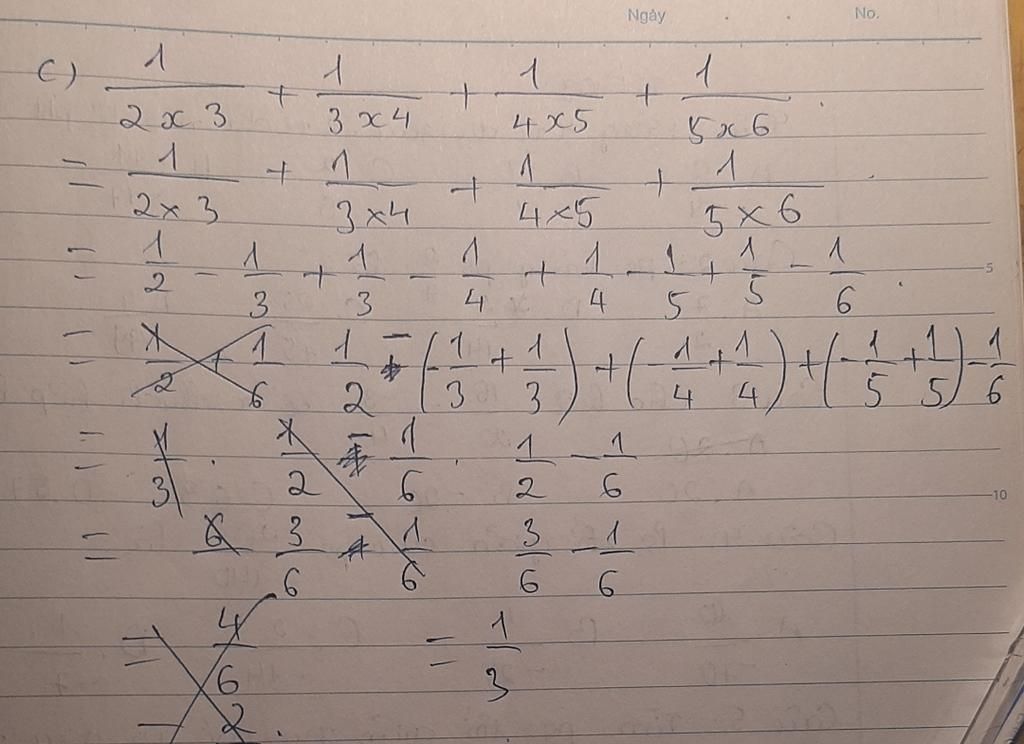 Ngày . . No.
c) 1/(2 x 3) + 1/(3 x 4) + 1/(4 x 5) + 1/(5 x 6) .
= 1/(2 x 3) + 1/(3 x 4) + 1/(4 x 5) + 1/(5 x 6) .
= 1/2 - 1/3 + 1/3 - 1/4 + 1/4 - 1/5 + 1/5 - 1/6 . 5
= 1/2 + 1/6 1/2 - (-1/3 + 1/3) + (-1/4 + 1/4) + (-1/5 + 1/5) - 1/6
= 1/3 . 1/2 - 1/6 . 1/2 - 1/6
10
= 6 3/6 - 1/6 3/6 - 1/6
= 4/6 = 1/3
= 2 .